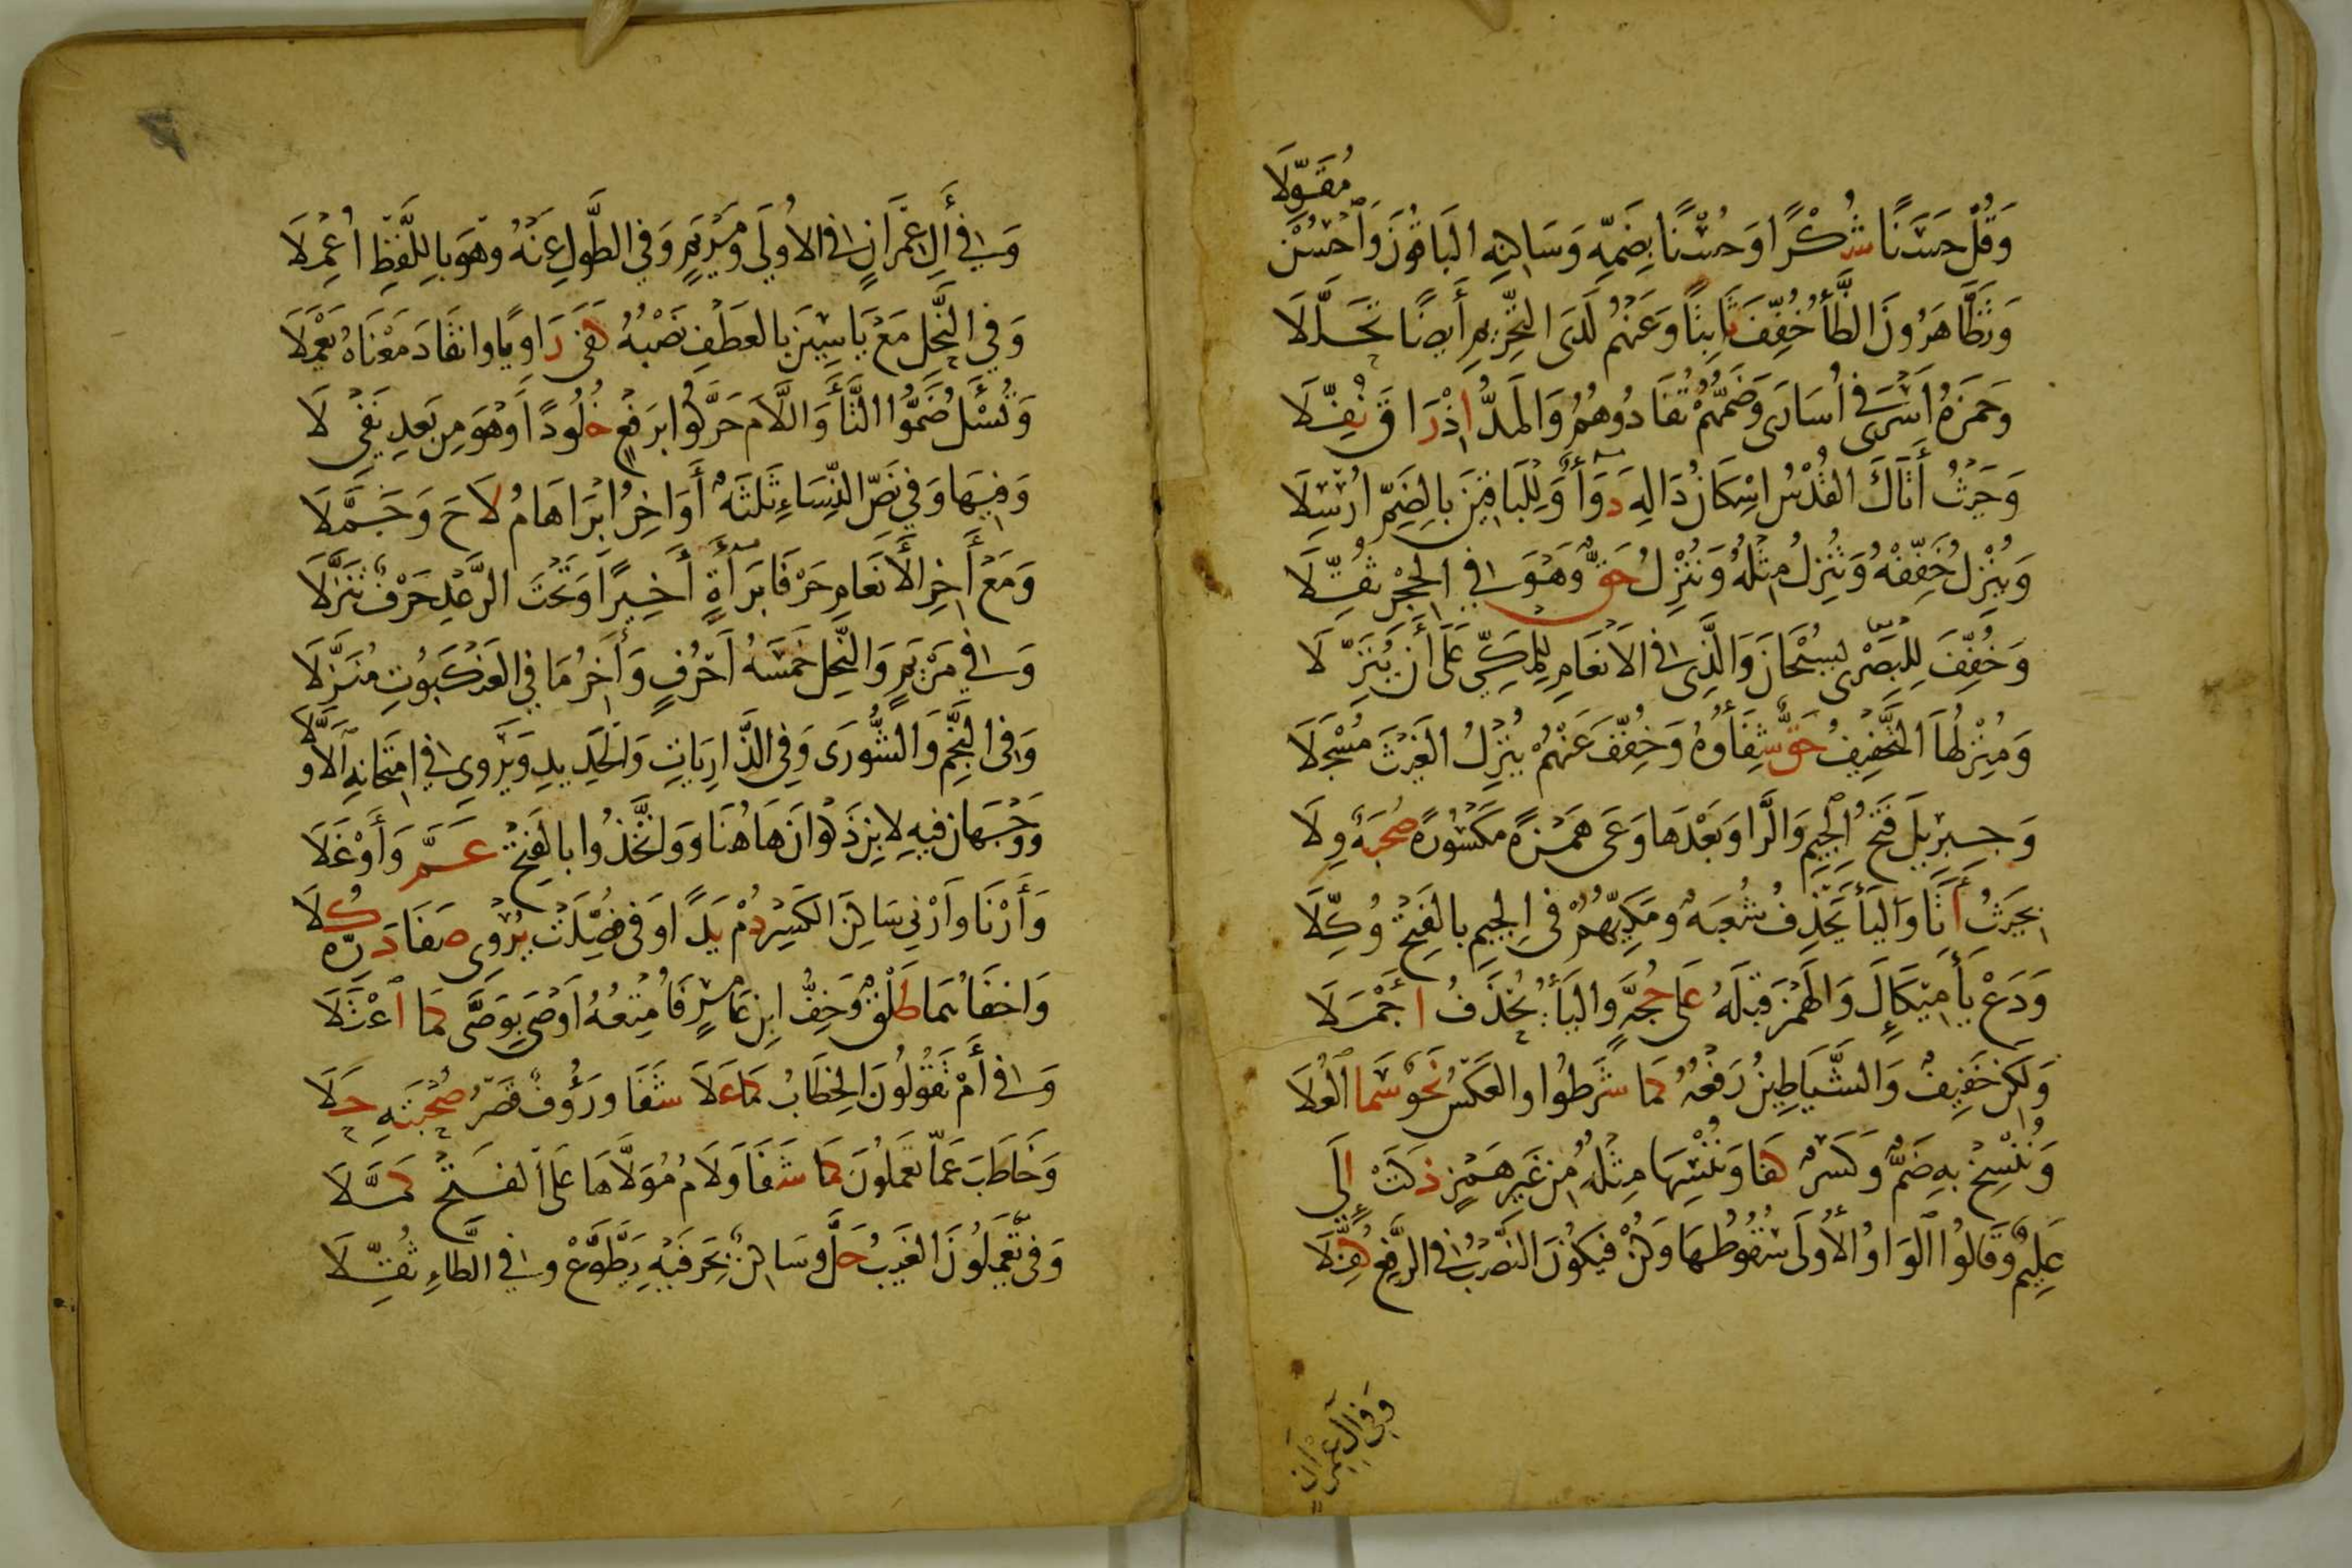 مُقَوِّلَا
وَقُلْ حَسَنًا شُكْرًا وَحُسْنًا بِضَمِّهِ وَسَاكِنِهِ الْبَاقُونَ وَاَحْسِنْ
وَتَظَّاهَرُونَ الظَّأُ خُفِّفَ ثَابِتًا وَعَنْهُمْ لَدَى التَّحْرِيمِ أَيضًا تَحَلَّلَا
وَحَمْزَةُ اَسْرَى فِي اُسَارَى وَضَمُّهُمْ تُفَادُوهُمُ وَالْمَدُّ اِذْ رَاقَ نُفِّلَا
وَحَيْثُ أَتَاكَ الْقُدْسُ اِسْكَانُ دَالِهِ دَوَأٌ وَلِلْبَاقِينَ بِالضَّمِّ اُرْسِلَا
وَيُنْزِلُ خَفِّفْهُ وَتُنْزِلُ مِثْلُهُ وَنُنْزِلُ حَقٌّ وَهْوَ فِي الْحِجْرِ ثُقِّلَا
وَخُفِّفَ لِلْبَصْرِى بِسُبْحَانَ وَالَّذِى فِي الْاَنْعَامِ لِلْمَكِّيِّ عَلَى أَن يُنَزِّلَا
وَمُنْزِلُهَا التَّخْفِيفُ حَقٌّ شِفَأُوهُ وَخُفِّفَ عَنْهُمْ يُنْزِلُ الْغَيْثَ مُسْجَلَا
وَجِبْرِيلَ فَتْحُ الْجِيمِ وَالرَّا وَبَعْدَهَا وَعَى هَمْزَةً مَكْسُورَةً صُحْبَةٌ وِلَا
بِحَيْثُ أَتَا وَالْيَأَ يَحْذِفُ شُعْبَةٌ وَمَكِّيُّهُمْ فِي الْجِيمِ بِالْفَتْحِ وُكِّلَا
وَدَعْ يَأَ مِيكَائِلَ وَالْهَمْزَ قَبْلَهُ عَلَى حُجَّةٍ وَالْيَأُ يُحْذَفُ اَجْمَلَا
وَلَكِنْ خَفِيفٌ وَالشَّيَاطِينُ رَفْعُهُ كَمَا شَرَطُوا وَالْعَكْسُ نَحْوٌ سَمَا الْعُلَا
وَنُنْسِخْ بِهِ ضَمٌّ وَكَسْرٌ كَفَا وَنُنْسِهَا مِثْلُهُ مِنْ غَيْرِ هَمْزٍ ذَكَتْ اِلَى
عَلِيمٌ وَقَالُوا الْوَاوُ الْأُولَى سُقُوطُهَا وَكُنْ فَيَكُونُ النَّصْبُ فِي الرَّفْعِ كُفِّلَا
وَفِي آلِ عِمْرَانٍ
وَفِي أَلِ عِمْرَانٍ فِي الْاُولَى وَمَرْيَمٍ وَفِي الطَّوْلِ عَنْهُ وَهْوَ بِاللَّفْظِ اُعْمِلَا
وَفِي النَّحْلِ مَعْ يَاسِينَ بِالْعَطْفِ نَصْبُهُ كَفَى رَاوِيًا وَانْقَادَ مَعْنَاهُ يَعْمَلَا
وَتُسْئَلُ ضَمُّوا التَّأَ وَاللَّامَ حَرَّكُوا بِرَفْعٍ خُلُودًا وَهْوَ مِنْ بَعْدِ نَفْيِ لَا
وَفِيهَا وَفِي نَصِّ النِّسَاءِ ثَلَثَةٌ أَوَاخِرُ اِبْرَاهَامُ لَاحَ وَجَمَّلَا
وَمَعْ أَخِرِ الْأَنْعَامِ حَرْفَا بَرَأَةٍ أَخِيرًا وَتَحْتَ الرَّعْدِ حَرْفٌ تَنَزَّلَا
وَفِي مَرْيَمٍ وَالنَّحْلِ خَمْسَةُ اَحْرُفٍ وَأَخِرُ مَا فِي الْعَنْكَبُوتِ مُنَزَّلَا
وَفِي النَّجْمِ وَالشُّورَى وَفِي الذَّارِيَاتِ وَالْحَدِيدِ وَيَرْوِى فِي امْتِحَانِهِ الْاَوَّلَا
وَوَجْهَانِ فِيهِ لِابْنِ ذَكْوَانَ هَاهُنَا وَوَاتَّخَذُوا بِالْفَتْحِ عَمَّ وَأَوْغَلَا
وَأَرْنَا وَاَرْنِي سَاكِنَ الْكَسْرِ دُمْ يَدًا وَفِي فُصِّلَتْ يُرْوِى صَفَا دَرِّهِ كُلَا
وَاخْفَاهُمَا طَلْقٌ وَخِفُّ ابْنِ عَامِرٍ فَأُمْتِعُهُ اَوْصَى بِوَصَّى كَمَا اعْتَلَا
وَفِي أَمْ تَقُولُونَ الْخِطَابُ كَمَا عَلَا شَفَا وَرَؤُفٌ قَصْرُ صُحْبَتِهِ حَلَا
وَخَاطَبَ عَمَّا تَعْمَلُونَ كَمَا شَفَا وَلَامُ مُوَلَّاهَا عَلَى الْفَتْحِ كَمَّلَا
وَفِي تَعْمَلُونَ الْغَيْبُ حَلَّ وَسَاكِنٌ بِحَرْفَيْهِ يَطَّوَّعْ وَفِي الطَّاءِ ثُقِّلَا